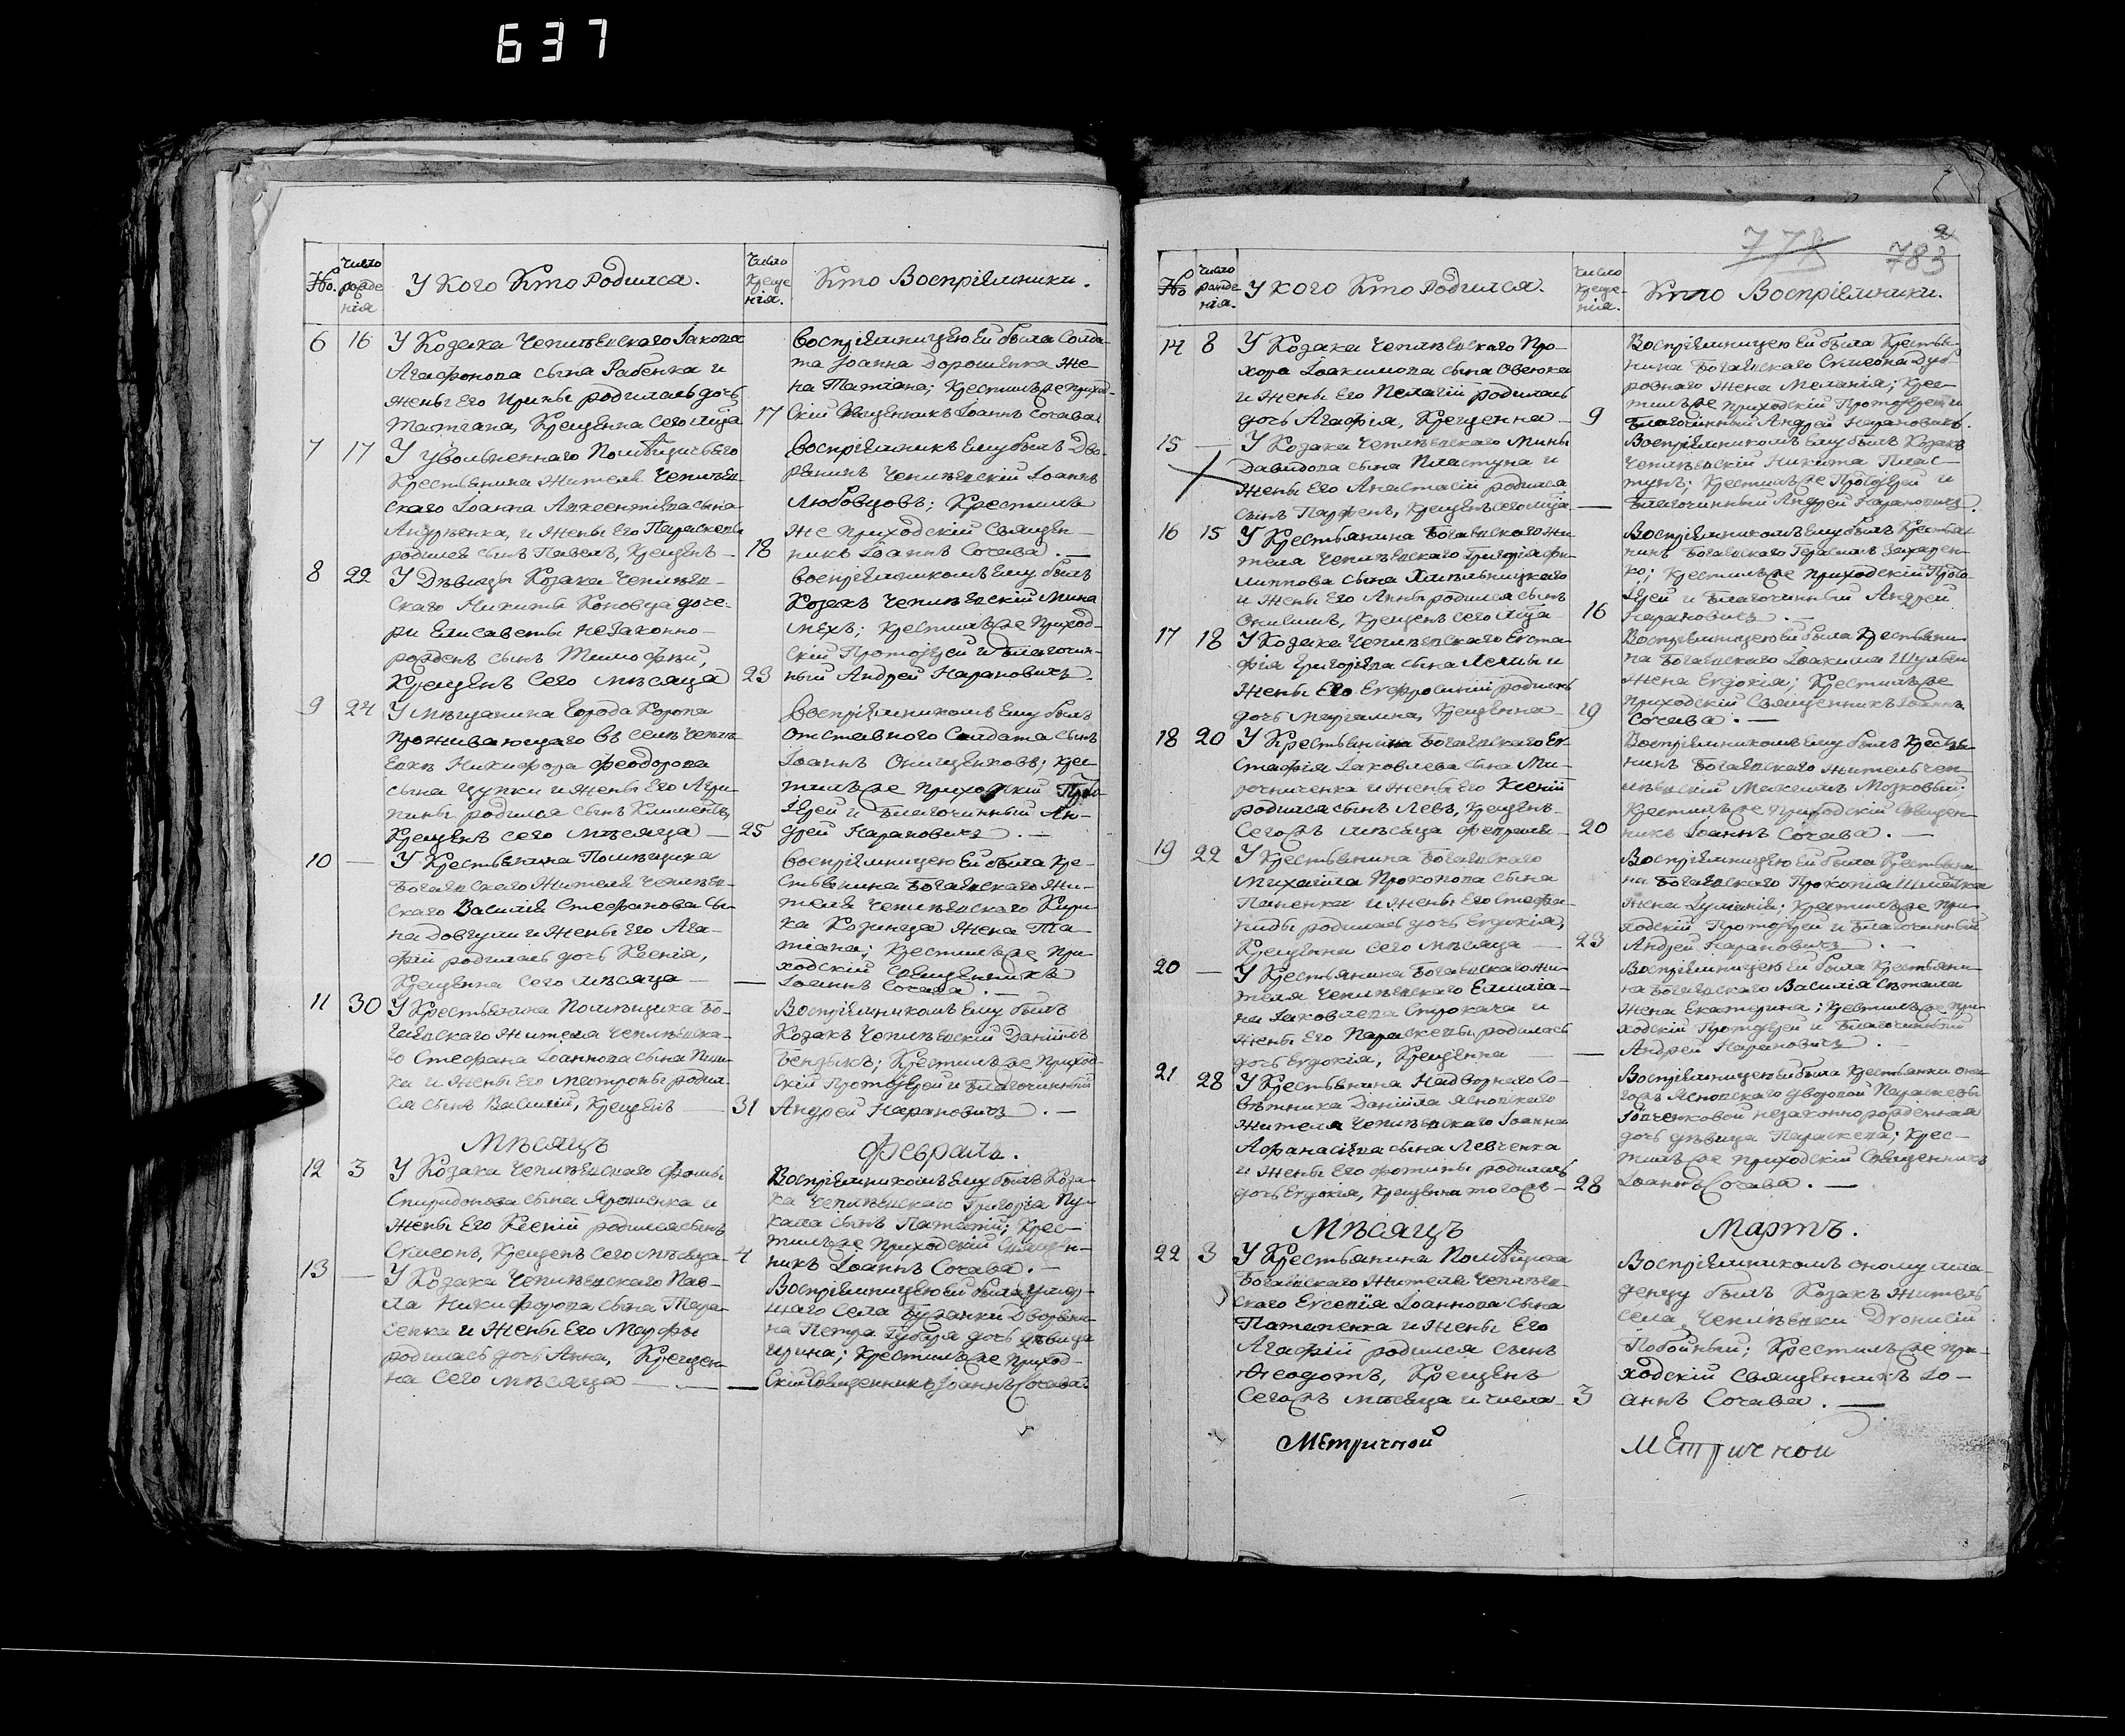 637
No. Число рожденія У кого Кто Родился. Число Крещенія. Кто Воспріемники.
6 16 У Козака Чеплѣевскаго Іакова
Агафонова сына Рабенка и
жены Его Ирины родилась дочь
Татіана, Крещенна сего мца 17
Воспріемницею Ей была Солда-
та Іоанна Дорошенка же-
на Татіана; Крестилъ же приход-
скій Священникъ Іоаннъ Сочава
7 17 У Увольненнаго Помѣщичьего
Крестьянина Жителя Чеплѣев-
скаго Іоанна сына
Андрѣенка, и Жены Его Параскевы
родился сынъ Павелъ, Крещенъ — 18
Воспріемникъ Ему былъ Дво-
рянинъ Чеплѣевскій Іоаннъ
Любовцовъ; Крестилъ
же приходскій Священ-
никъ Іоаннъ Сочава. —
8 22 У Дѣвицы Козака Чеплѣев-
скаго Никиты доче-
ри Елисаветы незаконно-
рожденъ сынъ Тимофѣй,
Крещенъ Сего мѣсяца 23
Воспріемникомъ Ему былъ
Козакъ Чеплѣевскій Мина
Мехъ; Крестилъ же Приход-
скій Протоіерей и Благочин-
ный Андрей Нарановичъ.
9 24 У мѣщанина Города Коропа
проживающаго въ селѣ Чеплѣ-
евкѣ Никифора Феодорова
сына Цупки и жены Его Агри-
пины родился сынъ Климентъ,
Крещенъ сего мѣсяца — 25
Воспріемникомъ Ему былъ
отставного Салдата сынъ
Іоаннъ Онищенковъ; Крес-
тилъ же Приходскій Прото-
іерей и Благочинный Ан-
дрей Нарановичъ. —
10 — У Крестьянина Помѣщика
Богаевскаго Жителя Чеплѣев-
скаго Василія Стефанова сы-
на Довгули и жены Его Ага-
фіи родилась дочь Ксенія,
Крещенна Сего мѣсяца — —
Воспріемницею Ей была Кре-
стьянина Богаевскаго Жи-
теля Чеплѣевскаго Кири-
ка Коринца жена Та-
тіана; Крестилъ же При-
ходскій Священникъ
Іоаннъ Сочава. —
11 30 У Крестьянина Помѣщика Бо-
гаевскаго Жителя Чеплѣевска-
го Стефана Іоаннова сына
и жены Его Матроны родил-
ся сынъ Василій, Крещенъ — 31
Воспріемникомъ Ему былъ
Козакъ Чеплѣевскій Даніилъ
Бендикъ; Крестилъ же Приход-
скій Протоіерей и Благочинный
Андрей Нарановичъ. —
Мѣсяцъ Февраль.
12 3 У Козака Чеплѣевскаго Фомы
Спиридонова сына Ярошенка и
Жены Его Ксеніи родился сынъ
Симеонъ, Крещенъ сего мѣсяца 4
Воспріемникомъ Ему былъ Коза-
ка Чеплѣевскаго Григорія Пу-
кала сынъ Ипатій; Крес-
тилъ же Приходскій Священ-
никъ Іоаннъ Сочава. —
13 — У Козака Чеплѣевскаго Пав-
ла Никифорова сына Тара-
сенка и Жены Его Марфы
родилась дочь Анна, Крещен-
на Сего мѣсяца — —
Воспріемницею Ей была умер-
шаго села Дворяни-
на Петра Губаря дочь дѣвица
Ирина; Крестилъ же Приход-
скій Священникъ Іоаннъ Сочава.
2
778 783
No Число рожденія. У кого Кто Родился. Число Крещенія. Кто Воспріемники.
14 8 У Козака Чеплѣевскаго Про-
хора Іоакимова сына Овенка
и Жены Его Пелагіи родилась
дочь Агафія, Крещенна — 9
Воспріемницею Ей была Крестья-
нина Богаевскаго Симеона Дуб-
ровнаго Жена Меланія; Крес-
тилъ же приходскій Протоіерей и
Благочинный Андрей Нарановичъ.
15 — У Козака Чеплѣевскаго Мины
Давидова сына Пластуна и
Жены Его Анастасіи родился
сынъ Парфенъ, Крещенъ сего мца —
Воспріемникомъ Ему былъ Козакъ
Чеплѣевскій Никита Плас-
тунъ; Крестилъ же Протоіерей и
Благочинный Андрей Нарановичъ.
16 15 У Крестьянина Богаевскаго Жи-
теля Чеплѣевскаго Григорія Фи-
липпова сына Хмѣльницкаго
и Жены Его Анны родился сынъ
Онисимъ, Крещенъ сего мца 16
Воспріемникомъ Ему былъ Крестья-
нинъ Богаевскаго Герасимъ Захарен-
ко; Крестилъ же приходскій Прото-
іерей и Благочинный Андрей
Нарановичъ. —
17 18 У Козака Чеплѣевскаго Евста-
фія Григоріева сына Лемы и
Жены Его Евфросиніи родилась
дочь Маріамна, Крещенна — 19
Воспріемницею Ей была Крестьяни-
на Богаевскаго Іоакима
Жена Евдокія; Крестилъ же
приходскій Священникъ Іоаннъ
Сочава. —
18 20 У Крестьянина Богаевскаго Ев-
стафія Іаковлева сына Ми-
и Жены Его Ксеніи
родился сынъ Левъ, Крещенъ
Сегожъ мѣсяца Февраля — 20
Воспріемникомъ Ему былъ Крестья-
нинъ Богаевскаго Житель Чеп-
лѣевскій Максимъ Мозковый;
Крестилъ же Приходскій Священ-
никъ Іоаннъ Сочава. —
19 22 У Крестьянина Богаевскаго
Михаила Прокопова сына
Паненка и Жены Его Степа-
ниды родилась дочь Евдокія,
Крещенна Сего мѣсяца — 23
Воспріемницею Ей была Крестьяни-
на Богаевскаго Прокопія
жена Іуліанія; Крестилъ же При-
ходскій Протоіерей и Благочинный
Андрей Нарановичъ. —
20 — У Крестьянина Богаевскаго Жи-
теля Чеплѣевскаго Емиліа-
на Іаковлева Строкача и
Жены Его Параскевы родилась
дочь Евдокія, Крещенна — —
Воспріемницею Ей была Крестьяни-
на Богаевскаго Василія
Жена Екатерина; Крестилъ же При-
ходскій Протоіерей и Благочинный
Андрей Нарановичъ. —
21 28 У Крестьянина Надворнаго Со-
вѣтника Даніила Ясновскаго
Жителя Чеплѣевскаго Іоанна
Афанасіева сына Левченка
и Жены Его Фотины родилась
дочь Евдокія, Крещенна тогожъ — 28
Воспріемницею Ей была Крестьянки она-
гожъ Ясновскаго дворовой Параскевы
незаконнорожденная
дочь дѣвица Параскева; Крес-
тилъ же приходскій Священникъ
Іоаннъ Сочава. —
Мѣсяцъ Мартъ.
22 3 У Крестьянина Помѣщика
Богаевскаго Жителя Чеплѣев-
скаго Евсевія Іоаннова сына
Потапенка и Жены Его
Агафіи родился сынъ
Ѳеодотъ, Крещенъ
Сегожъ мѣсяца и числа 3
Воспріемникомъ оному мла-
денцу былъ Козакъ житель
села Чеплѣевки Діонисій
Побойный; Крестилъ же При-
ходскій Священникъ Іо-
аннъ Сочава. —
Метричной Метричной